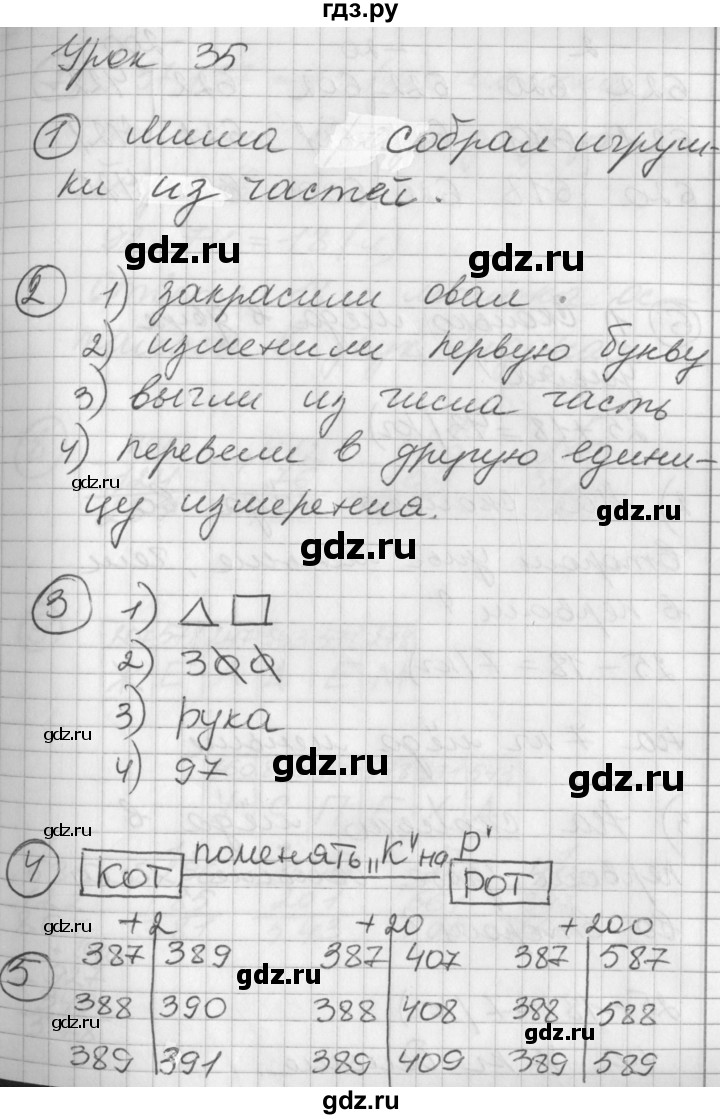 гдз.ру
Урок 35
1 Миша собрал игруш-
ки из частей.
gdz.ru gdz.ru
2 1) закрасили овал.
2) изменили первую букву
3) вычли из числа часть
4) перевели в другую едини-
gdz.ru
цу измерения.
gdz.ru
gdz.ru
3 1) △ □
2) 300
3) рука
gdz.ru
4) 97
gdz.ru gdz.ru
gdz.ru
4 КОТ поменять „К" на Р' РОТ
+2 +20 +200
5 387 389 387 407 387 587
gdz.ru gdz.ru
388 390 388 408 388 588
gdz.ru gdz.ru
389 391 389 409 389 589
gdz.ru